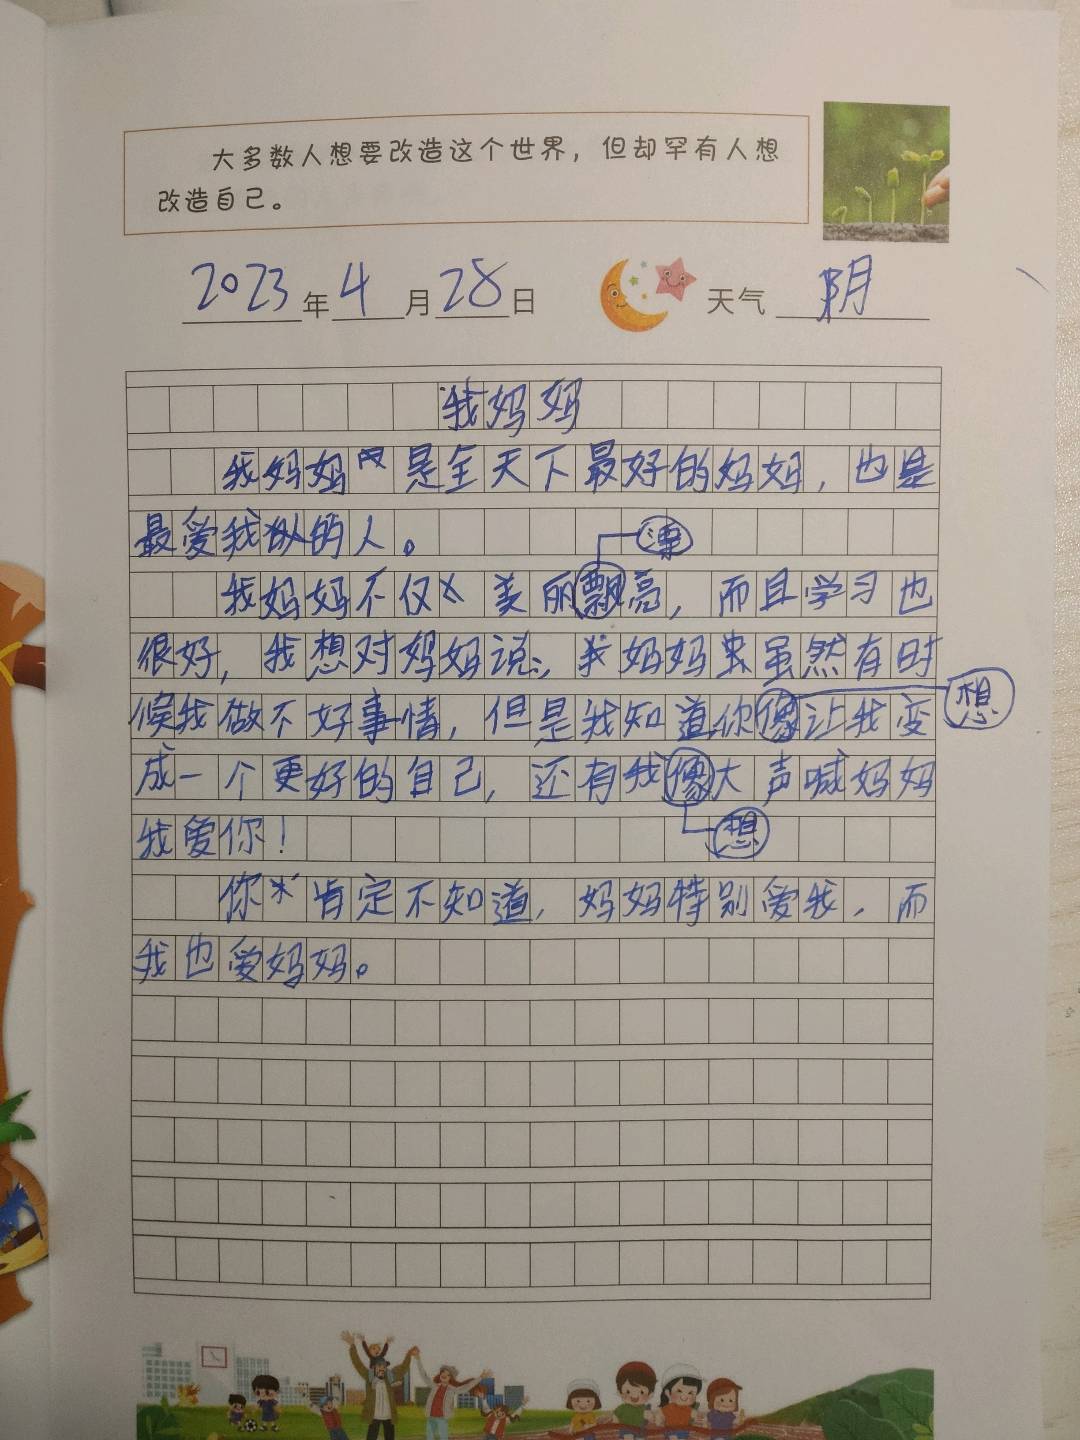 大多数人想要改造这个世界，但却罕有人想
改造自己。
2023年4月28日 天气 阴
我妈妈
我妈妈是全天下最好的妈妈，也是
最爱我的人。
漂
我妈妈不仅美丽飘亮，而且学习也
很好，我想对妈妈说：我妈妈虽然有时
候我做不好事情，但是我知道你像让我变
想
成一个更好的自己，还有我像大声喊妈妈
我爱你！
想
你肯定不知道，妈妈特别爱我，而
我也爱妈妈。